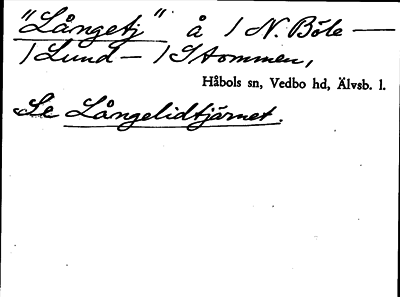 "Långetj" å / N. Böle —
/ Lund — / Stommen,
Håbols sn, Vedbo hd, Älvsb. l.
Se Långelidtjärnet.